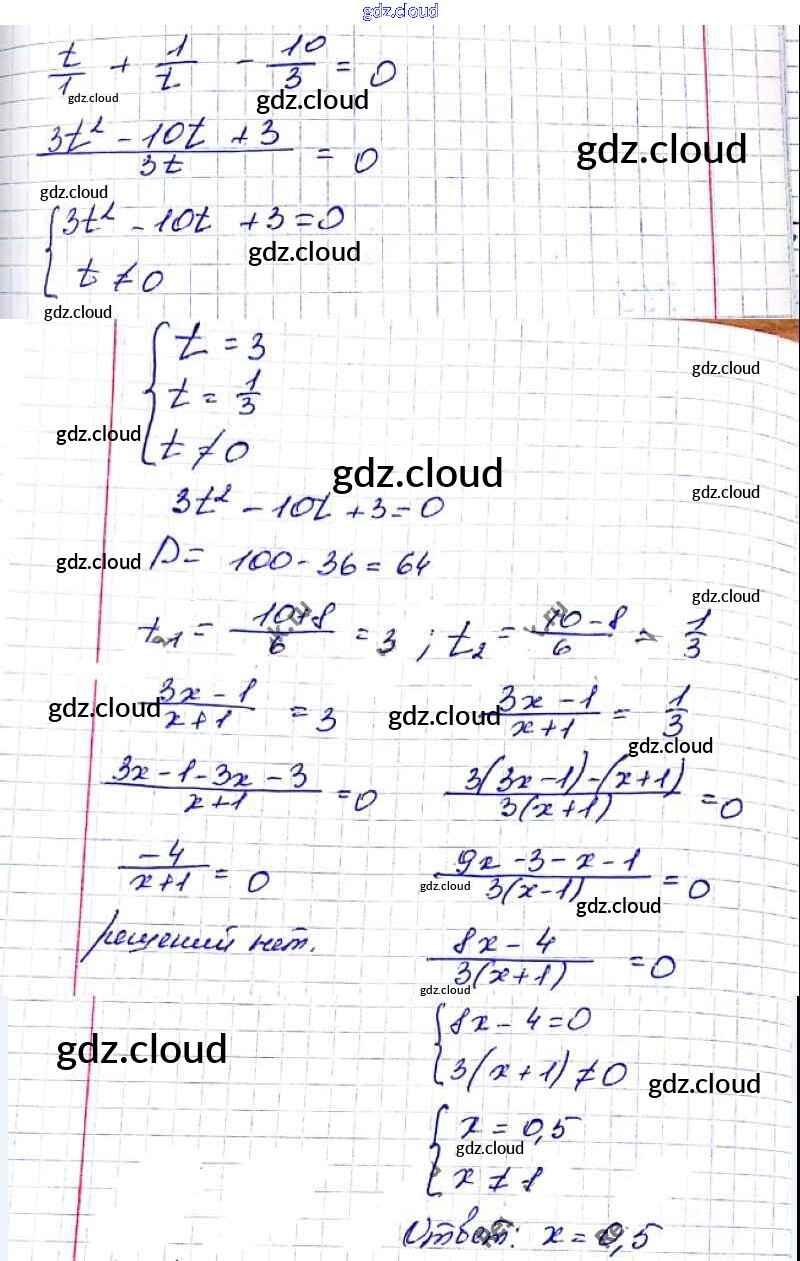 gdz.cloud
t/1 + 1/t - 10/3 = 0
gdz.cloud
gdz.cloud
gdz.cloud
(3t² - 10t + 3)/(3t) = 0
gdz.cloud
{ 3t² - 10t + 3 = 0
gdz.cloud
t ≠ 0
gdz.cloud
{ t = 3
gdz.cloud
t = 1/3
gdz.cloud
t ≠ 0
gdz.cloud
gdz.cloud
3t² - 10t + 3 = 0
gdz.cloud
D = 100 - 36 = 64
gdz.cloud
t₁ = (10+8)/6 = 3 ; t₂ = (10-8)/6 = 1/3
gdz.cloud
(3x - 1)/(x+1) = 3
gdz.cloud
(3x - 1)/(x+1) = 1/3
gdz.cloud
(3x - 1 - 3x - 3)/(x+1) = 0
(3(3x-1)-(x+1))/(3(x+1)) = 0
-4/(x+1) = 0
(9x - 3 - x - 1)/(3(x-1)) = 0
gdz.cloud
gdz.cloud
решений нет.
(8x - 4)/(3(x+1)) = 0
gdz.cloud
{ 8x - 4 = 0
gdz.cloud
3(x+1) ≠ 0
gdz.cloud
{ x = 0,5
gdz.cloud
x ≠ 1
Ответ: x = 0,5